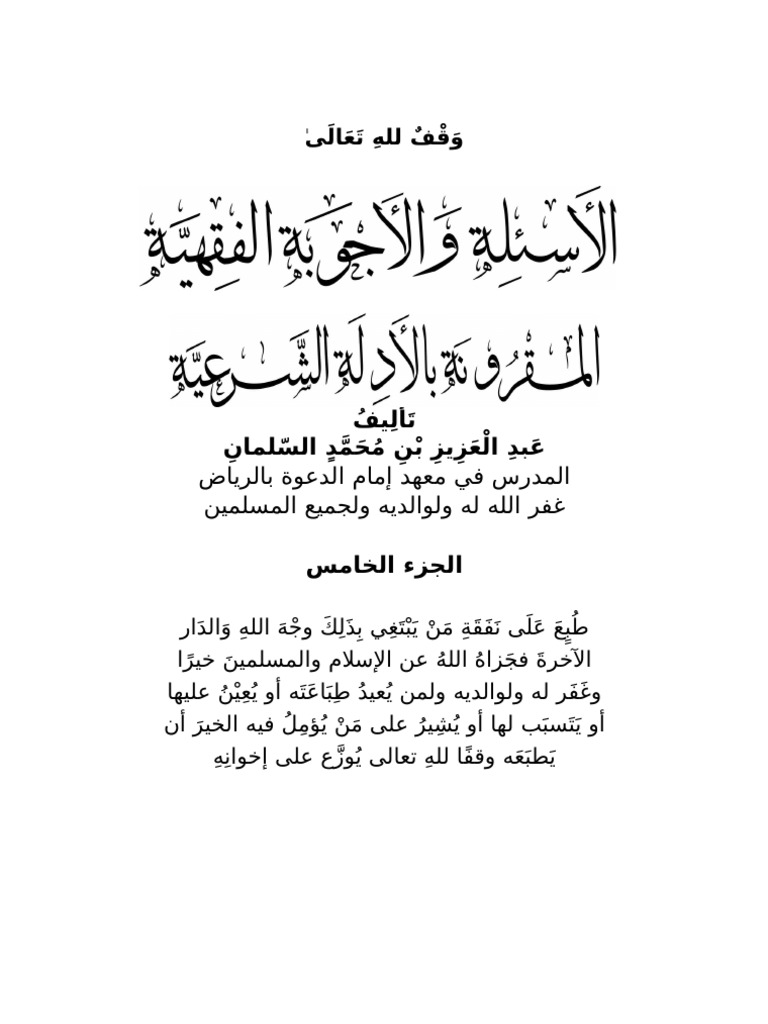 وَقْفٌ للهِ تَعَالَىٰ
الأَسْئِلَة وَالأَجْوِبَة الفِقْهِيَّة
المَقْرُونَة بالأَدِلَة الشَّرعِيَّة
تَأْلِيفُ
عَبدِ الْعَزِيزِ بْنِ مُحَمَّدٍ السّلمانِ
المدرس في معهد إمام الدعوة بالرياض
غفر الله له ولوالديه ولجميع المسلمين
الجزء الخامس
طُبِعَ عَلَى نَفَقَةِ مَنْ يَبْتَغِي بِذَلِكَ وجْهَ اللهِ وَالدَار
الآخرةَ فجَزاهُ اللهُ عن الإسلام والمسلمينَ خيرًا
وغَفَر له ولوالديه ولمن يُعيدُ طِبَاعَتَه أو يُعِيْنُ عليها
أو يَتَسبَب لها أو يُشِيرُ على مَنْ يُؤمِلُ فيه الخيرَ أن
يَطبَعَه وقفًا للهِ تعالى يُوزَّع على إخوانِهِ